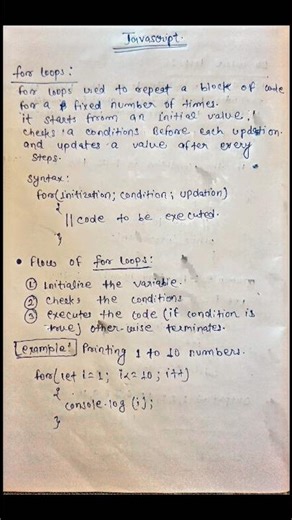 Javascript.
for loops:
for loops used to repeat a block of code
for a fixed number of times.
it starts from an initial value,
checks a conditions Before each updation.
and updates a value after every
steps.
Syntax:
for(initization; condition; updation)
{
|| code to be executed.
}
• Flows of for loops:
① Initialize the variable.
② Checks the conditions
③ executes the code (if condition is
true) other-wise terminates.
Example: Printing 1 to 10 numbers.
for(let i=1; i<=10; i++)
{
console.log(i);
}